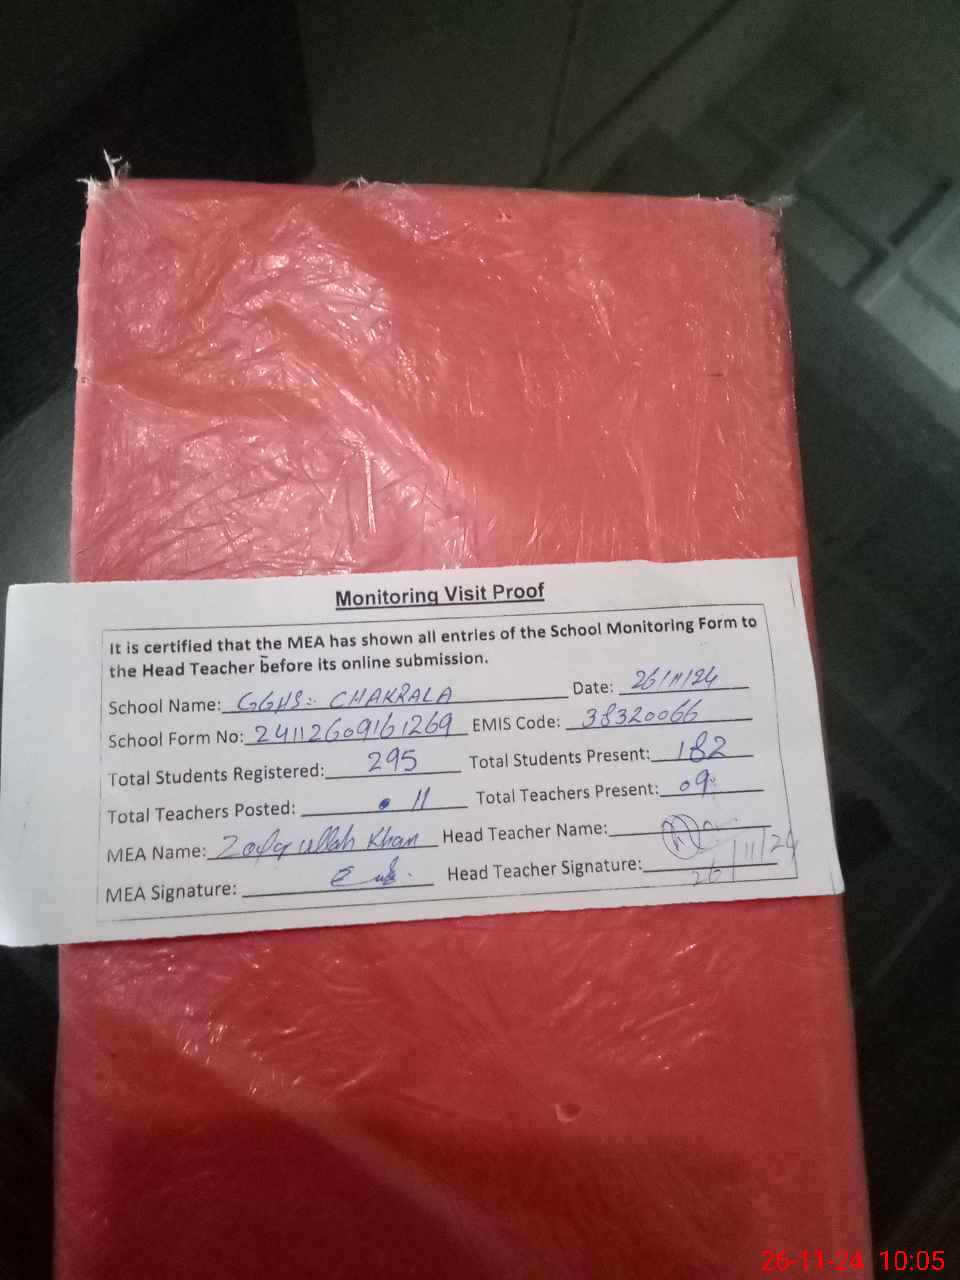 Monitoring Visit Proof
It is certified that the MEA has shown all entries of the School Monitoring Form to
the Head Teacher before its online submission.
School Name: GGHS:- CHAKRALA Date: 26/11/24
School Form No: 24112609161269 EMIS Code: 38320066
Total Students Registered: 295 Total Students Present: 182
Total Teachers Posted: 11 Total Teachers Present: 09
MEA Name: Zafar ullah Khan Head Teacher Name:
MEA Signature: Head Teacher Signature: 26/11/24
26-11-24 10:05